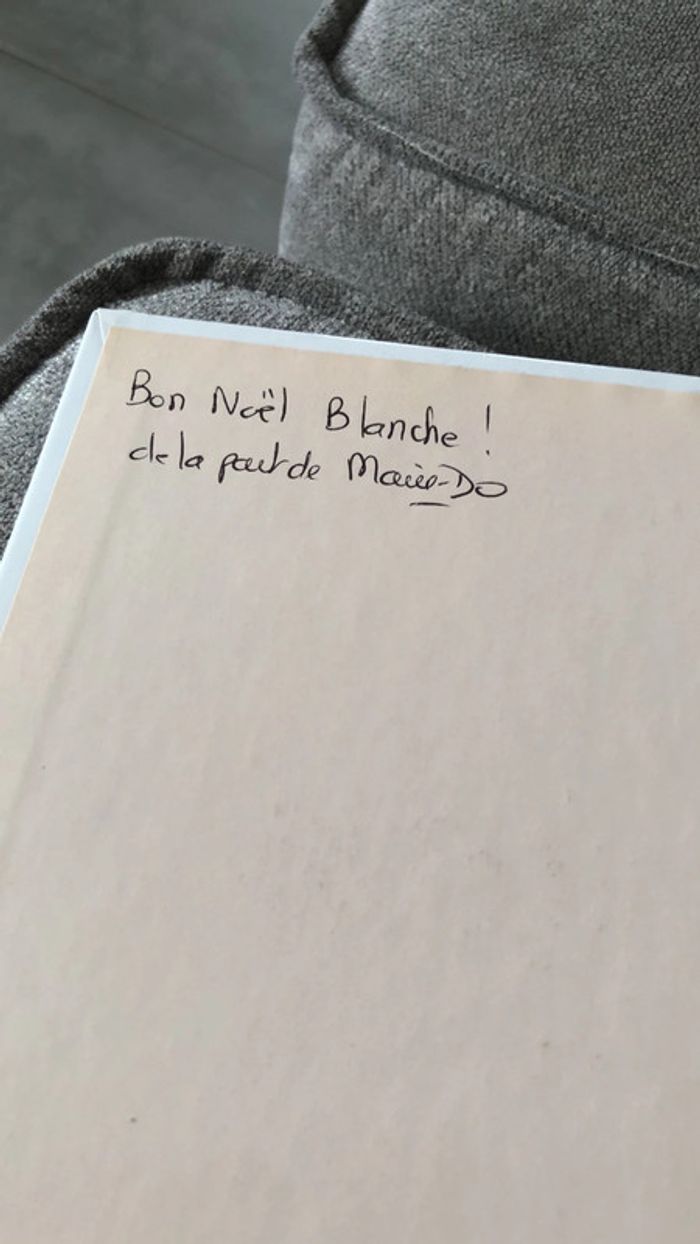 Bon Noël Blanche !
de la part de Marie-Do